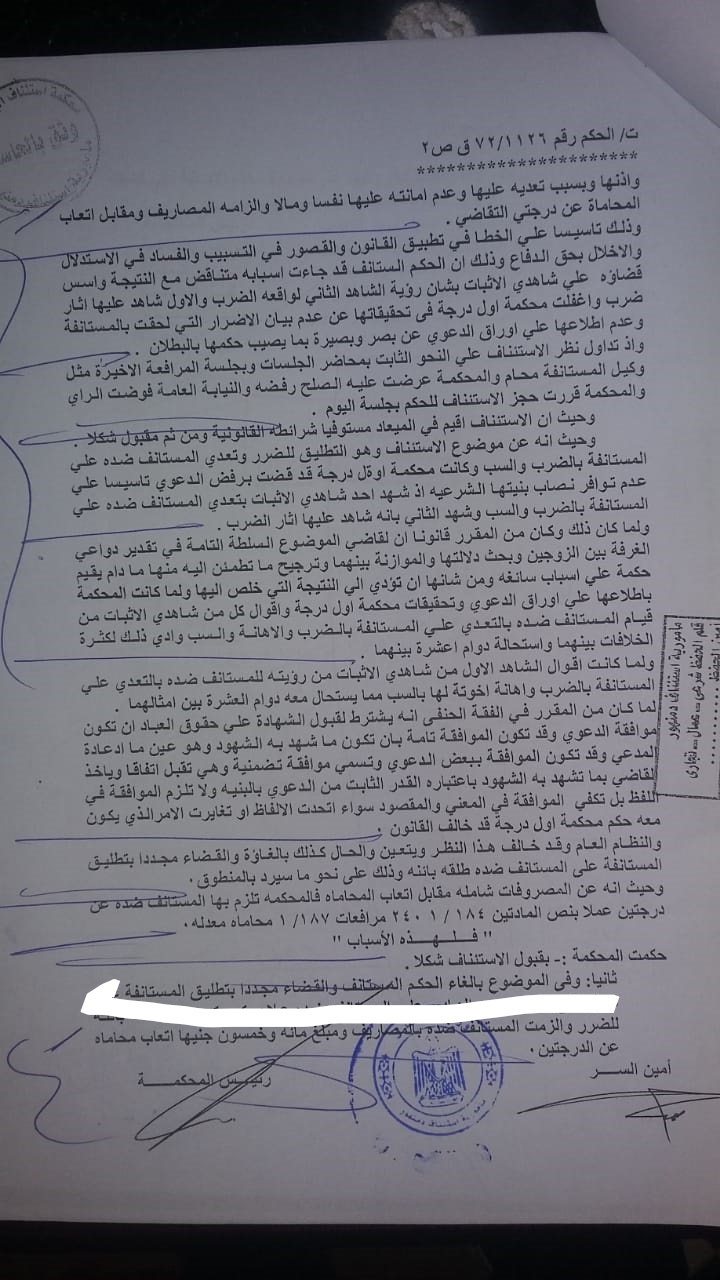 ت/ الحكم رقم ٧٢/١١٢٦ ق ص٢
**********************
واذنها وبسبب تعديه عليها وعدم امانته عليها نفسا ومالا والزامه المصاريف ومقابل اتعاب
المحاماة عن درجتي التقاضي .
وذلك تاسيسا علي الخطا في تطبيق القانون والقصور في التسبيب والفساد في الاستدلال
والاخلال بحق الدفاع وذلك ان الحكم الستانف قد جاءت اسبابه متناقض مع النتيجة واسس
قضاؤه علي شاهدي الاثبات بشان رؤية الشاهد الثاني لواقعه الضرب والاول شاهد عليها اثار
ضرب واغفلت محكمة اول درجة فى تحقيقاتها عن عدم بيان الاضرار التي لحقت بالمستانفة
وعدم اطلاعها علي اوراق الدعوي عن بصر وبصيرة بما يصيب حكمها بالبطلان .
واذ تداول نظر الاستئناف علي النحو الثابت بمحاضر الجلسات وبجلسة المرافعة الاخيرة مثل
وكيل المستانفة محام والمحكمة عرضت عليه الصلح رفضه والنيابة العامة فوضت الراي
والمحكمة قررت حجز الاستئناف للحكم بجلسة اليوم .
وحيث ان الاستئناف اقيم في الميعاد مستوفيا شرائطه القانونية ومن ثم مقبول شكلا .
وحيث انه عن موضوع الاستئناف وهو التطليق للضرر وتعدي المستانف ضده علي
المستانفة بالضرب والسب وكانت محكمة اوئل درجة قد قضت برفض الدعوي تاسيسا علي
عدم توافر نصاب بنيتها الشرعيه اذ شهد احد شاهدي الاثبات بتعدي المستانف ضده علي
المستانفة بالضرب والسب وشهد الثاني بانه شاهد عليها اثار الضرب .
ولما كان ذلك وكان من المقرر قانونا ان لقاضي الموضوع السلطة التامة في تقدير دواعي
الغرفة بين الزوجين وبحث دلالتها والموازنة بينهما وترجيح ما تطمئن اليه منها ما دام يقيم
حكمة علي اسباب سائغه ومن شانها ان تؤدي الي النتيجة التي خلص اليها ولما كانت المحكمة
باطلاعها علي اوراق الدعوي وتحقيقات محكمة اول درجة واقوال كل من شاهدي الاثبات من
قيام المستانف ضده بالتعدي علي المستانفة بالضرب والاهانة والسب وادي ذلك لكثرة
الخلافات بينهما واستحالة دوام اعشرة بينهما .
ولما كانت اقوال الشاهد الاول من شاهدي الاثبات من رؤيته للمستانف ضده بالتعدي علي
المستانفة بالضرب واهانة اخوتة لها بالسب مما يستحال معه دوام العشرة بين امثالهما .
لما كان من المقرر في الفقة الحنفى انه يشترط لقبول الشهادة علي حقوق العباد ان تكون
موافقة الدعوي وقد تكون الموافقة تامة بان تكون ما شهد به الشهود وهو عين ما ادعادة
المدعي وقد تكون الموافقة ببعض الدعوي وتسمي موافقة تضمنية وهي تقبل اتفاقا وياخذ
لقاضي بما تشهد به الشهود باعتباره القدر الثابت من الدعوي بالبنيه ولا تلزم الموافقة في
اللفظ بل تكفي الموافقة في المعني والمقصود سواء اتحدت الالفاظ او تغايرت الامرالذي يكون
معه حكم محكمة اول درجة قد خالف القانون .
والنظام العام وقد خالف هذا النظر ويتعين والحال كذلك بالغاؤة والقضاء مجددا بتطليق
المستانفة على المستانف ضده طلقه بائنه وذلك على نحو ما سيرد بالمنطوق.
وحيث انه عن المصروفات شامله مقابل اتعاب المحاماه فالمحكمه تلزم بها المستانف ضده عن
درجتين عملا بنص المادتين ١/١٨٤ ، ٢٤٠ مرافعات ١/١٨٧ محاماه معدله.
" فـلـهـذه الأسباب "
حكمت المحكمة :- بقبول الاستئناف شكلا .
ثانيا: وفى الموضوع بالغاء الحكم المستانف والقضاء مجددا بتطليق المستانفة
للضرر والزمت المستانف ضده بالمصاريف ومبلغ مائه وخمسون جنيها اتعاب محاماه
عن الدرجتين.
أمين السر
رئيس المحكمة
مأمورية استئناف دمنهور